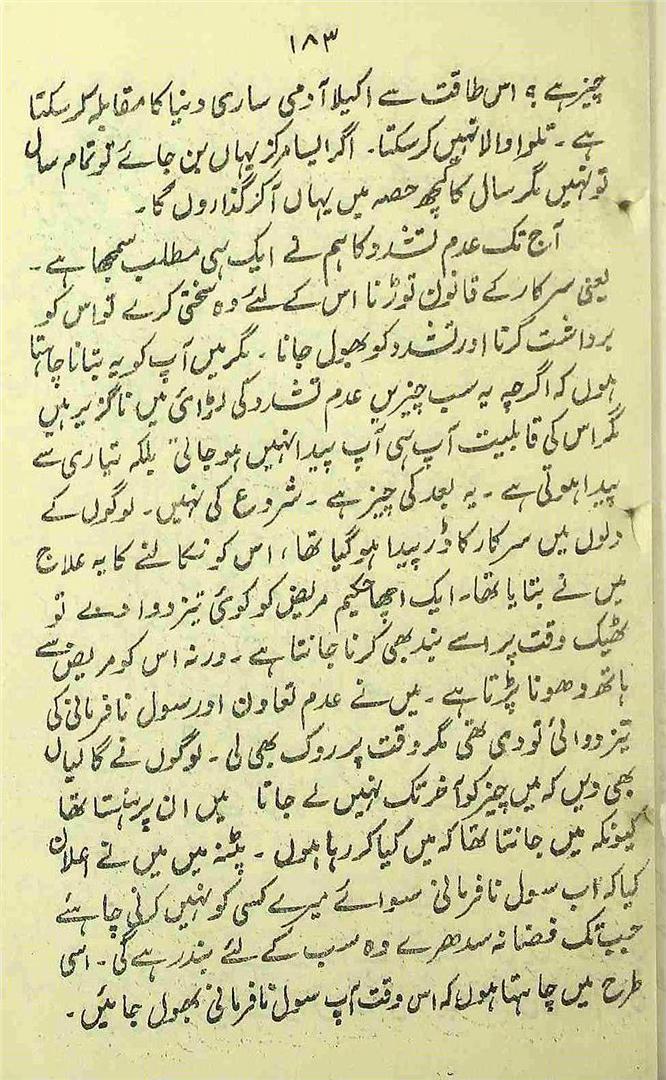 ۱۸۳
چیز ہے ؟ اس طاقت سے اکیلا آدمی ساری دنیا کا مقابلہ کر سکتا
ہے ۔ تلوار والا نہیں کر سکتا ۔ اگر ایسا مرکز یہاں بن جائے تو تمام سال
تو نہیں مگر سال کا کچھ حصہ میں یہاں آکر گذاروں گا ۔
آج تک عدم تشدد کا ہم نے ایک ہی مطلب سمجھا ہے ۔
یعنی سرکار کے قانون توڑنا اس کے لئے وہ سختی کرے تو اس کو
برداشت کرنا اور تشدد کو بھول جانا ۔ مگر میں آپ کو یہ بتانا چاہتا
ہوں کہ اگرچہ یہ سب چیزیں عدم تشدد کی لڑائی میں ناگزیر ہیں
مگر اس کی قابلیت آپ ہی آپ پیدا نہیں ہو جاتی بلکہ تیاری سے
پیدا ہوتی ہے ۔ یہ بعد کی چیز ہے ۔ شروع کی نہیں ۔ لوگوں کے
دلوں میں سرکار کا ڈر پیدا ہو گیا تھا ، اس کو نکالنے کا یہ علاج
میں نے بتایا تھا ۔ ایک اچھا حکیم مریض کو کوئی تیز دوا دے تو
ٹھیک وقت پر اسے بند بھی کرنا جانتا ہے ۔ ورنہ اس کو مریض سے
ہاتھ دھونا پڑتا ہے ۔ میں نے عدم تعاون اور سول نافرمانی کی
تیز دوائی تو دی تھی مگر وقت پر روک بھی لی ۔ لوگوں نے گالیاں
بھی دیں کہ میں چیز کو آخر تک نہیں لے جاتا میں ان پر ہنستا تھا
کیونکہ میں جانتا تھا کہ میں کیا کر رہا ہوں ۔ پٹنہ میں میں نے اعلان
کیا کہ اب سول نافرمانی سوائے میرے کسی کو نہیں کرنی چاہئے
جب تک فضا نہ سدھرے وہ سب کے لئے بند رہے گی ۔ اسی
طرح میں چاہتا ہوں کہ اس وقت آپ سول نافرمانی بھول جائیں ۔